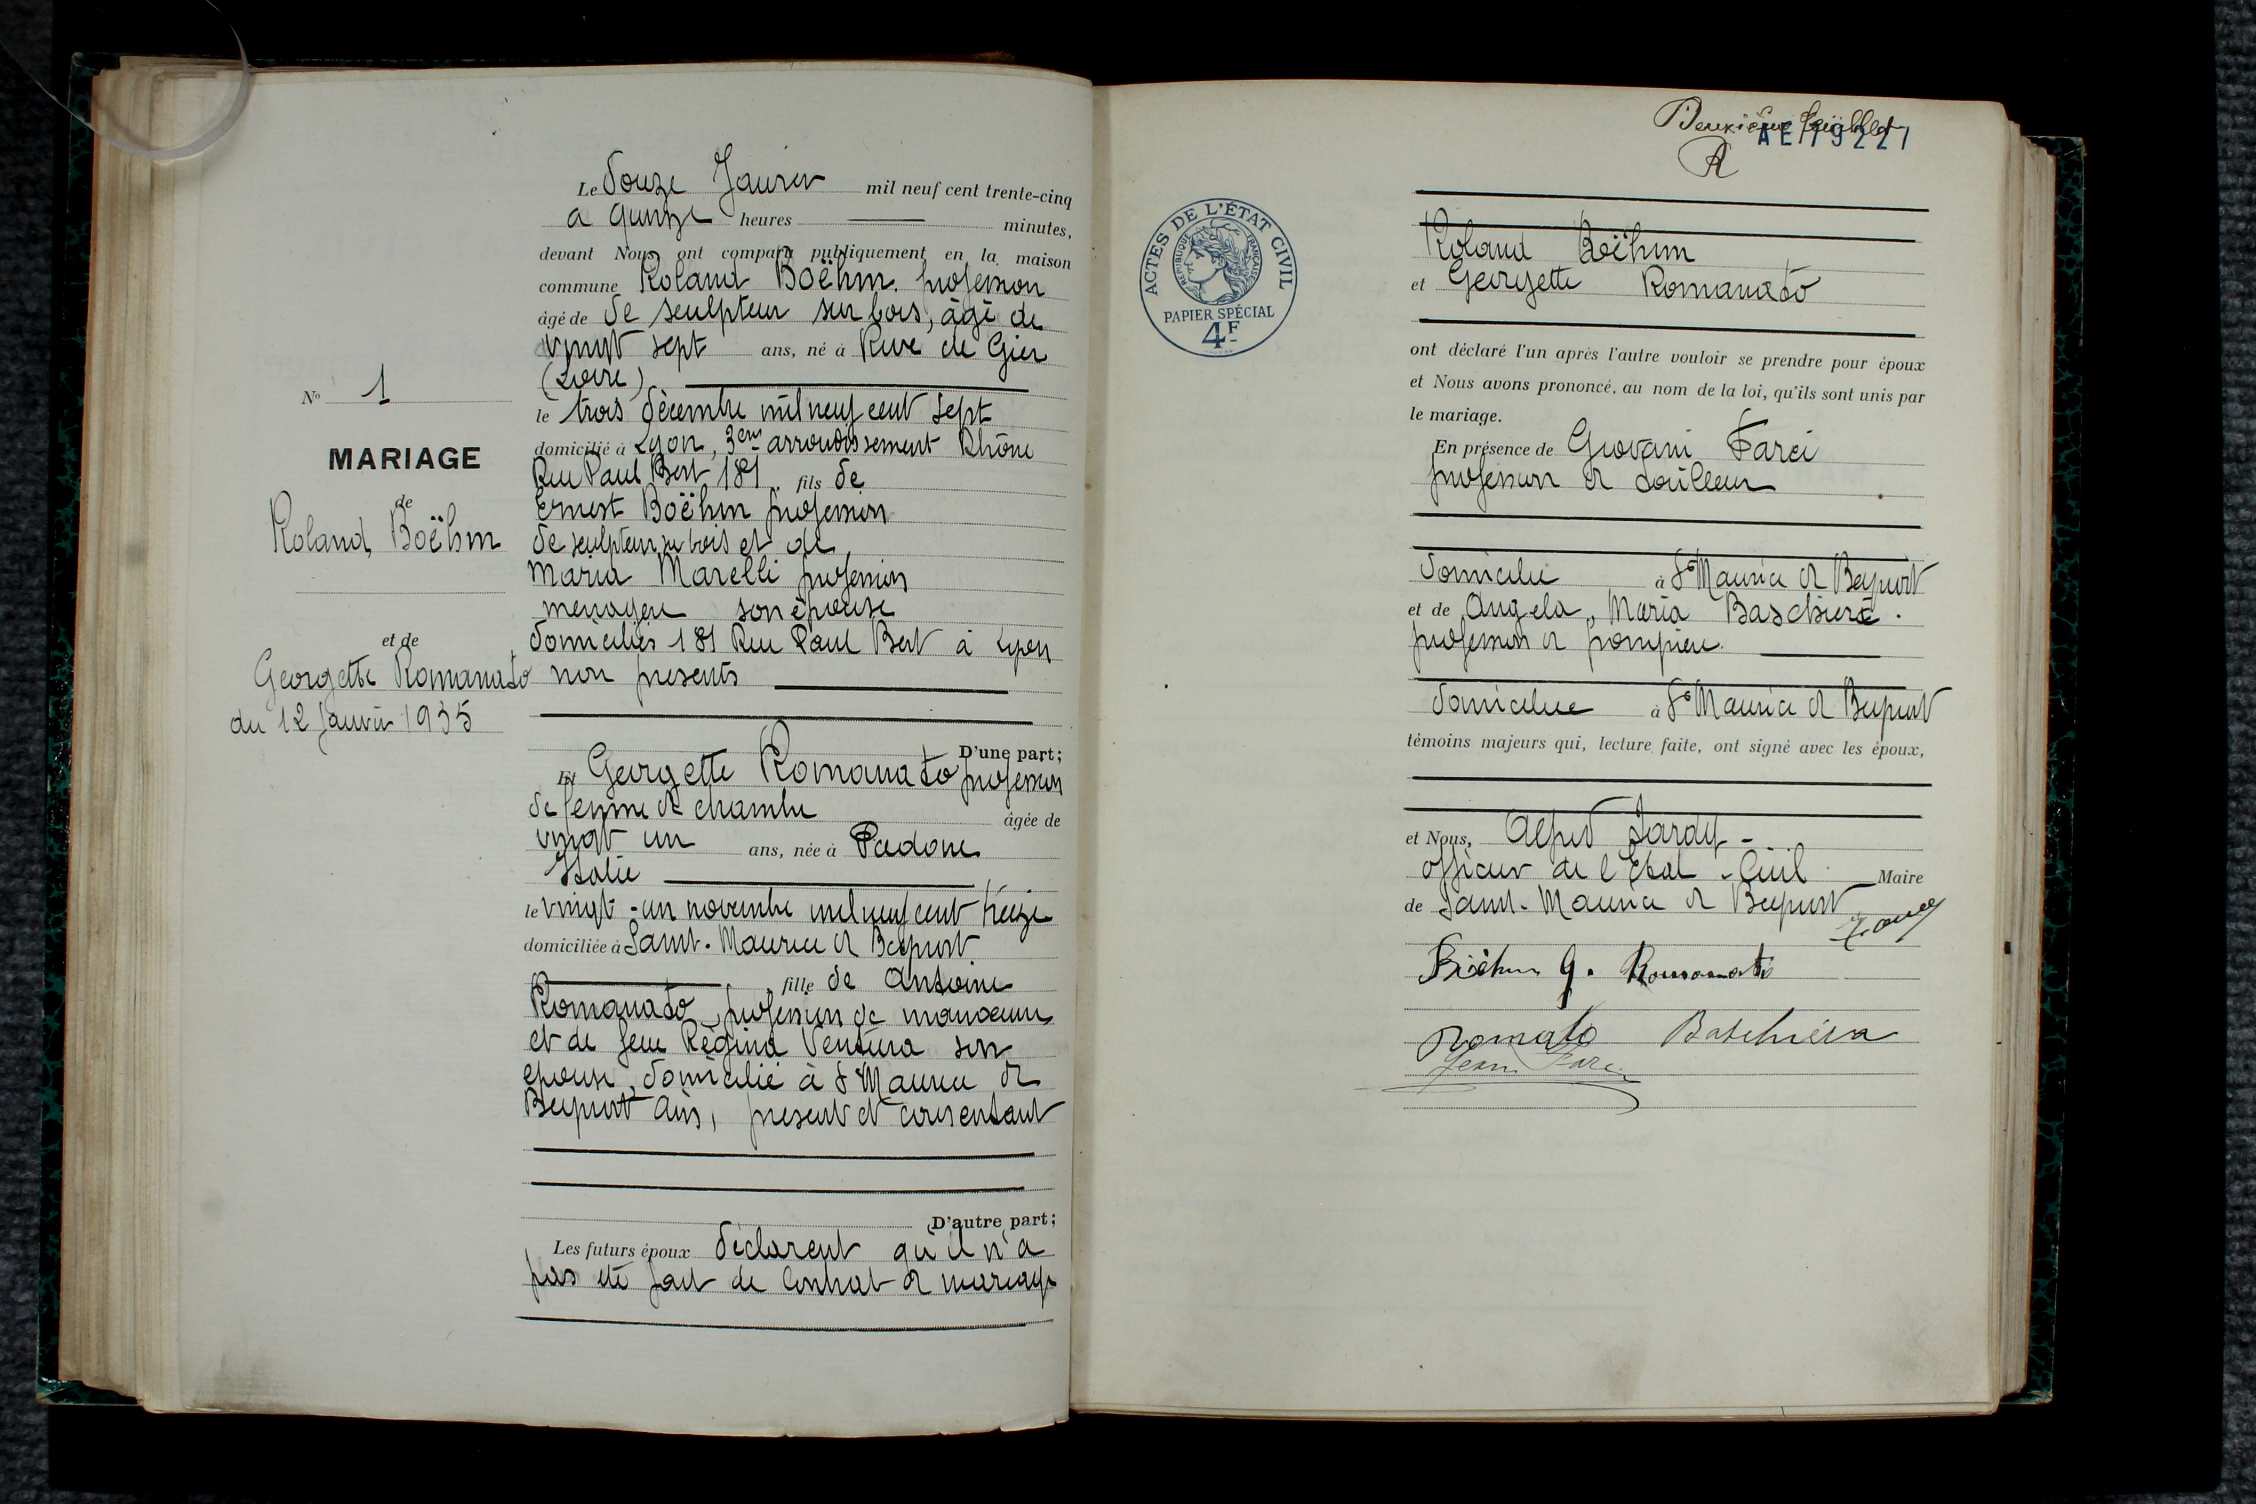 N° 1
MARIAGE
de
Roland Boëhm
et de
Georgette Romanato
du 12 Janvier 1935
Le Douze Janvier mil neuf cent trente-cinq
a quinze heures minutes,
devant Nous ont comparu publiquement en la maison
commune Roland Boëhm profession
âgé de de sculpteur sur bois, âgé de
vingt sept ans, né à Rive de Gier
(Loire)
le trois décembre mil neuf cent sept
domicilié à Lyon, 3em arrondissement Rhône
Rue Paul Bert 181 fils de
Ernest Boëhm profession
de sculpteur su bois et de
Maria Marelli profession
menagère son épouse
domiciliés 181 Rue Paul Bert à Lyon
non presents
D'une part;
Et Georgette Romanato profession
de femme de chambre âgée de
vingt un ans, née à Padoue
Italie
le vingt-un novembre mil neuf cent treize
domiciliée à Saint-Maurice de Beynost
fille de Antoine
Romanato, profession de manoeuvre
et de feue Régina Ventura son
epouse, domicilié à St Maurice de
Beynost Ain, présent et consentant
D'autre part;
Les futurs époux déclarent qu'il n'a
pas été fait de Contrat de mariage
Deuxième feuillet
AE 79221
ACTES DE L'ÉTAT CIVIL
RÉPUBLIQUE FRANÇAISE
PAPIER SPÉCIAL
4F
Roland Boëhm
et Georgette Romanato
ont déclaré l'un après l'autre vouloir se prendre pour époux
et Nous avons prononcé, au nom de la loi, qu'ils sont unis par
le mariage.
En présence de Giovani Farci
profession de
domicilié à St Maurice de Beynost
et de Angela, Maria Baschiera.
profession de
domiciliée à St Maurice de Beynost
témoins majeurs qui, lecture faite, ont signé avec les époux,
et Nous, Alfred
officier de l'Etat-Civil Maire
de Saint-Maurice de Beynost
Boëhm G. Romanato
Romato Baschiera
Jean Farci